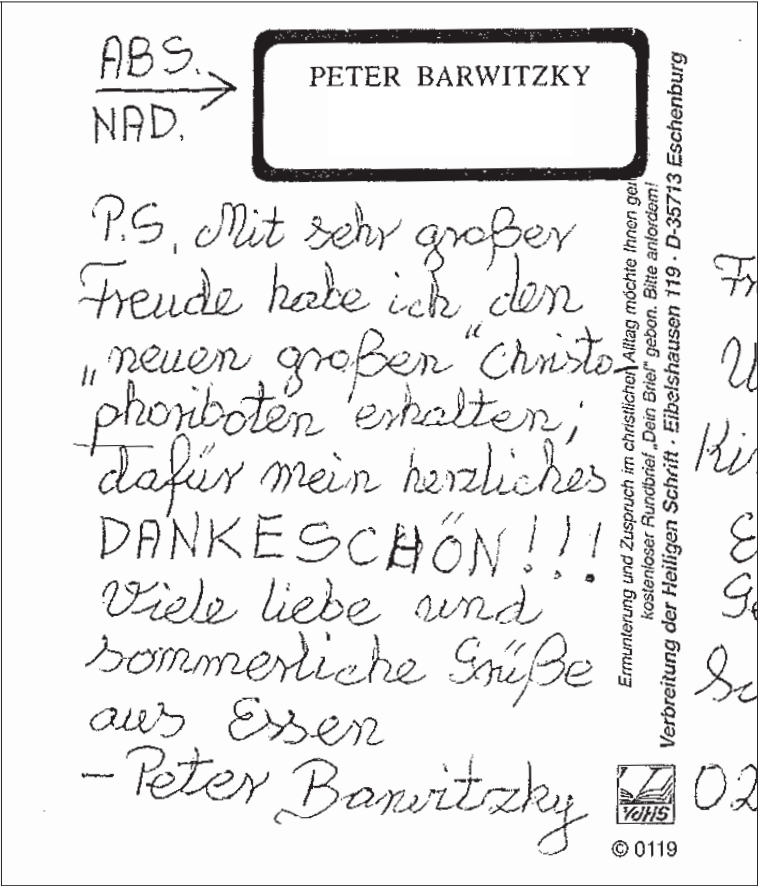 ABS.
NAD.
PETER BARWITZKY
P.S. Mit sehr großer
Freude habe ich den
„neuen großen“ Christo-
phoriboten erhalten;
dafür mein herzliches
DANKESCHÖN!!!
Viele liebe und
sommerliche Grüße
aus Essen
– Peter Barwitzky
Ermunterung und Zuspruch im christlichen Alltag möchte Ihnen
kostenloser Rundbrief „Dein Brief“ geben. Bitte anfordern!
Verbreitung der Heiligen Schrift · Eibelshausen 119 · D-35713 Eschenburg
VdHS
© 0119
Fr
U
Kir
E
Ge
Sc
02